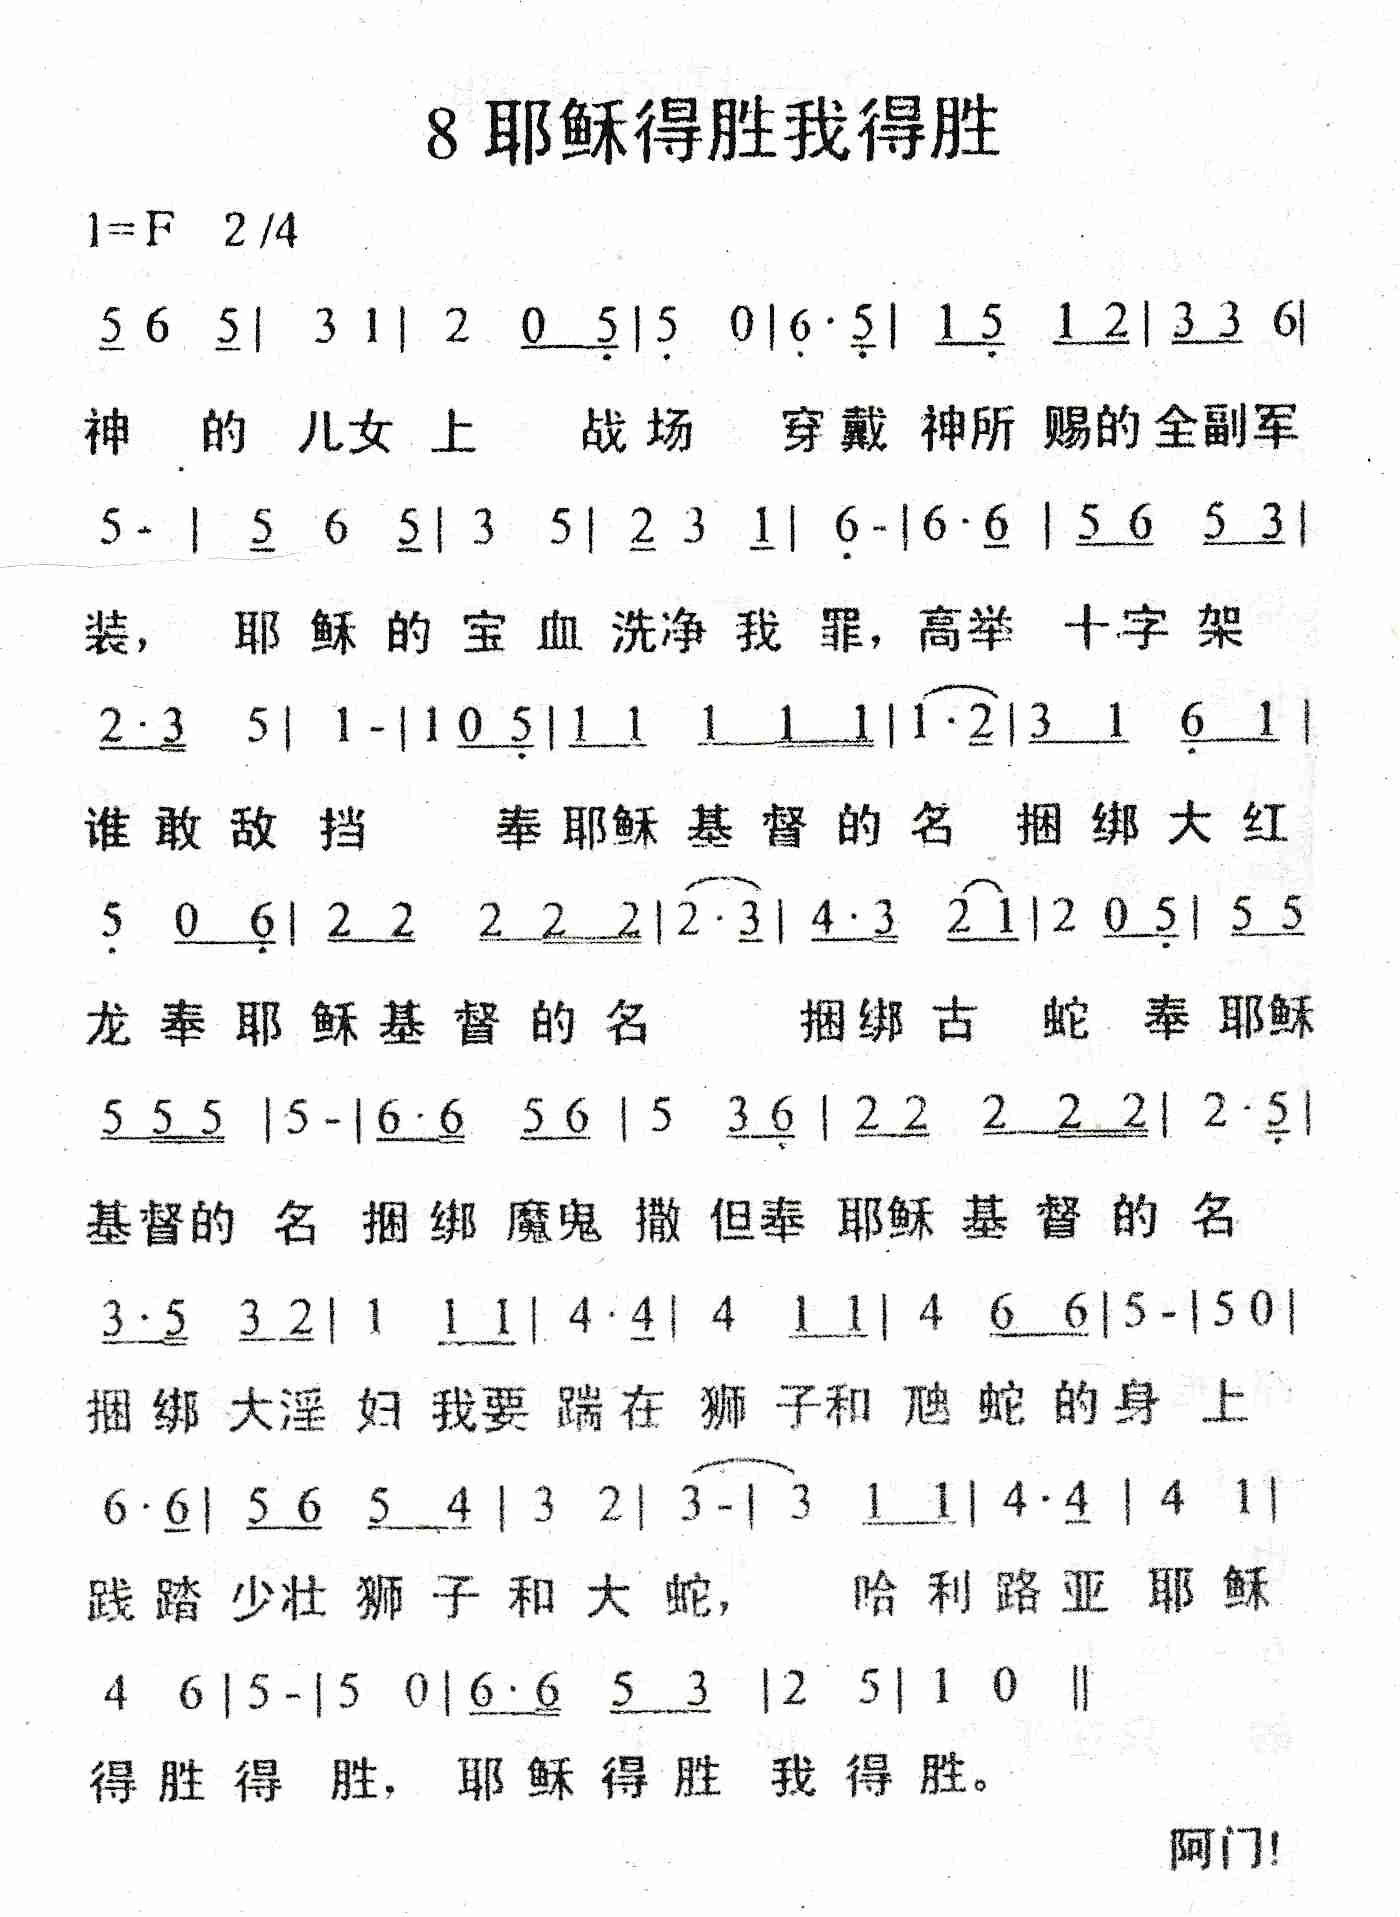 8 耶稣得胜我得胜
1=F 2/4
5 6 5| 3 1| 2 0 5|5 0|6·5| 1 5 1 2|3 3 6|
神 的 儿女 上 战 场 穿 戴 神所 赐的 全副军
5 - | 5 6 5| 3 5| 2 3 1| 6 -|6·6 |5 6 5 3|
装， 耶 稣 的 宝 血 洗净 我 罪，高举 十字 架
2·3 5| 1 -|1 0 5|1 1 1 1 1|1·2|3 1 6 1|
谁 敢 敌 挡 奉 耶稣 基 督 的 名 捆 绑 大 红
5 0 6| 2 2 2 2 2|2·3| 4·3 2 1|2 0 5| 5 5
龙 奉 耶 稣 基 督 的 名 捆绑 古 蛇 奉 耶稣
5 5 5 |5 -|6·6 5 6 | 5 3 6 | 2 2 2 2 2| 2·5|
基督的 名 捆 绑 魔鬼 撒 但奉 耶稣 基 督 的 名
3·5 3 2| 1 1 1| 4·4| 4 1 1| 4 6 6|5 -|5 0|
捆 绑 大淫 妇 我要 踹 在 狮 子和 虺 蛇 的 身 上
6·6| 5 6 5 4 | 3 2| 3 -| 3 1 1| 4·4 | 4 1|
践 踏 少壮 狮 子 和 大 蛇， 哈 利 路 亚 耶 稣
4 6|5 -|5 0|6·6 5 3 |2 5| 1 0 ‖
得 胜 得 胜， 耶 稣 得 胜 我 得 胜。
阿门！